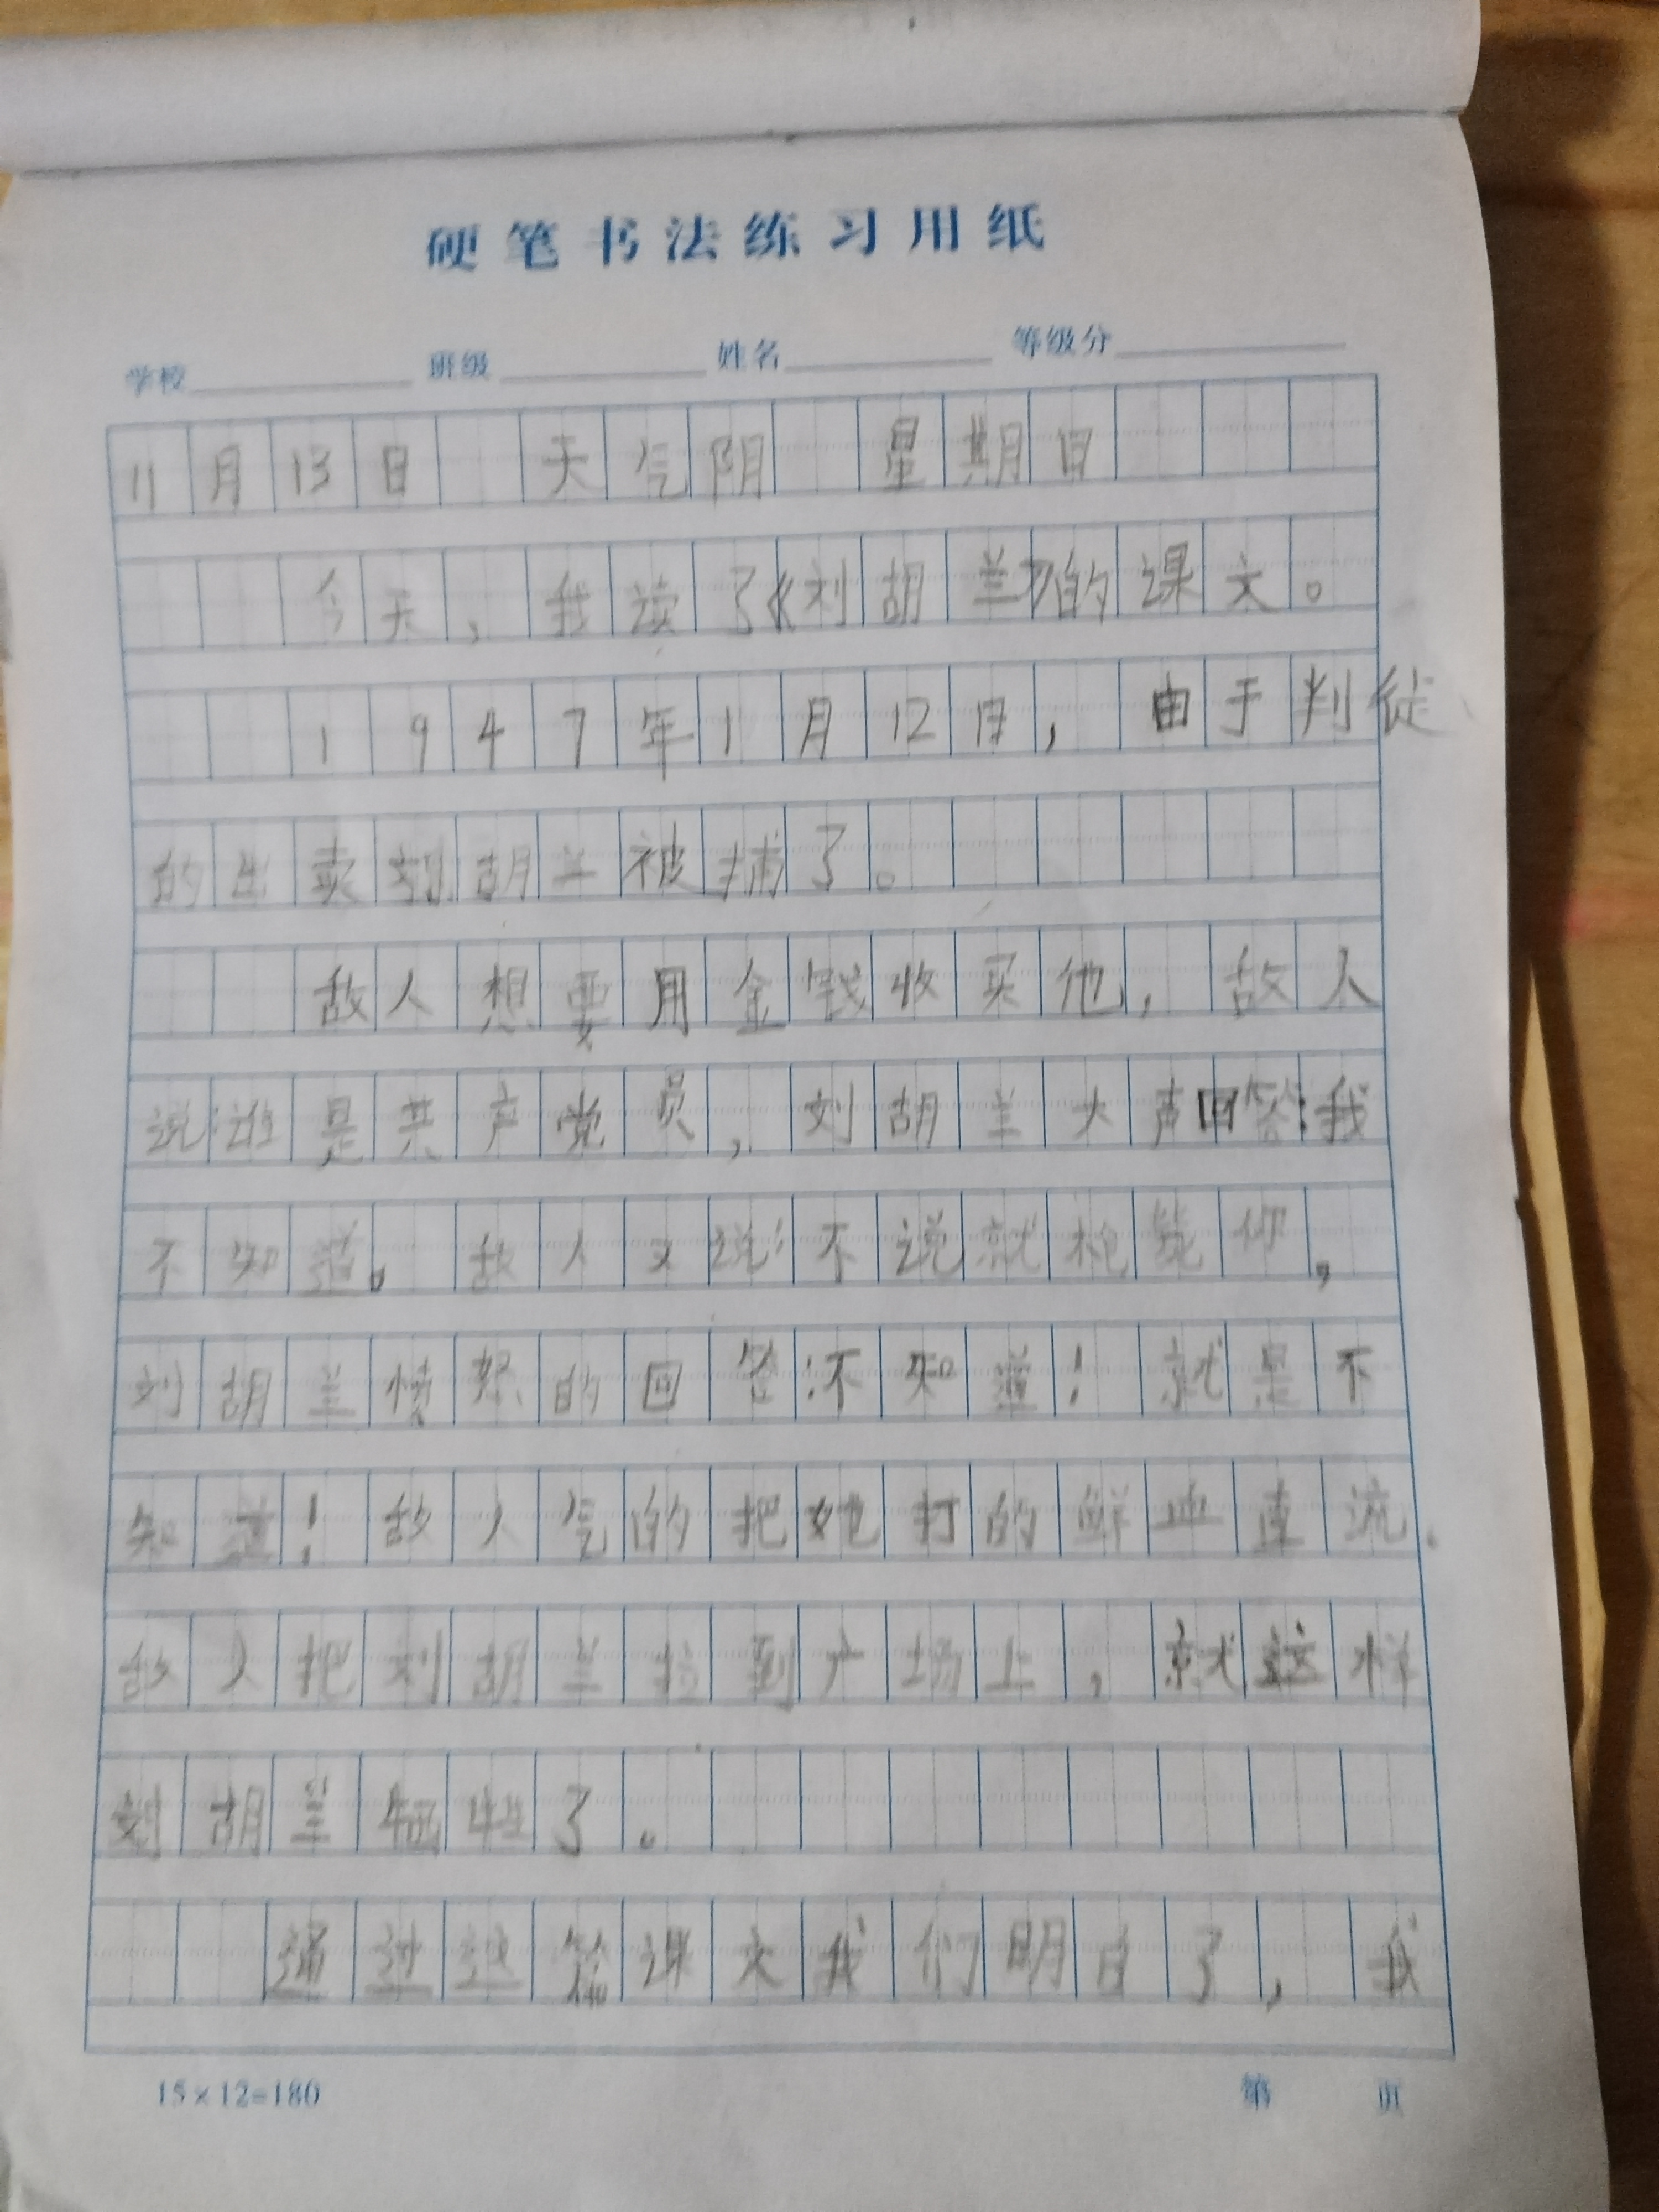 硬笔书法练习用纸
学校 班级 姓名 等级分
11月13日 天气阴 星期日
今天，我读了《刘胡兰》的课文。
1947年1月12日，由于判徒
的出卖刘胡兰被捕了。
敌人想要用金钱收买他，敌人
说谁是共产党员，刘胡兰大声回答：我
不知道。敌人又说：不说就枪毙你，
刘胡兰愤怒的回答：不知道！就是不
知道！敌人气的把她打的鲜血直流.
敌人把刘胡兰拉到广场上，就这样
刘胡兰牺牲了。
通过这篇课文我们明白了，我
15×12=180 第 页